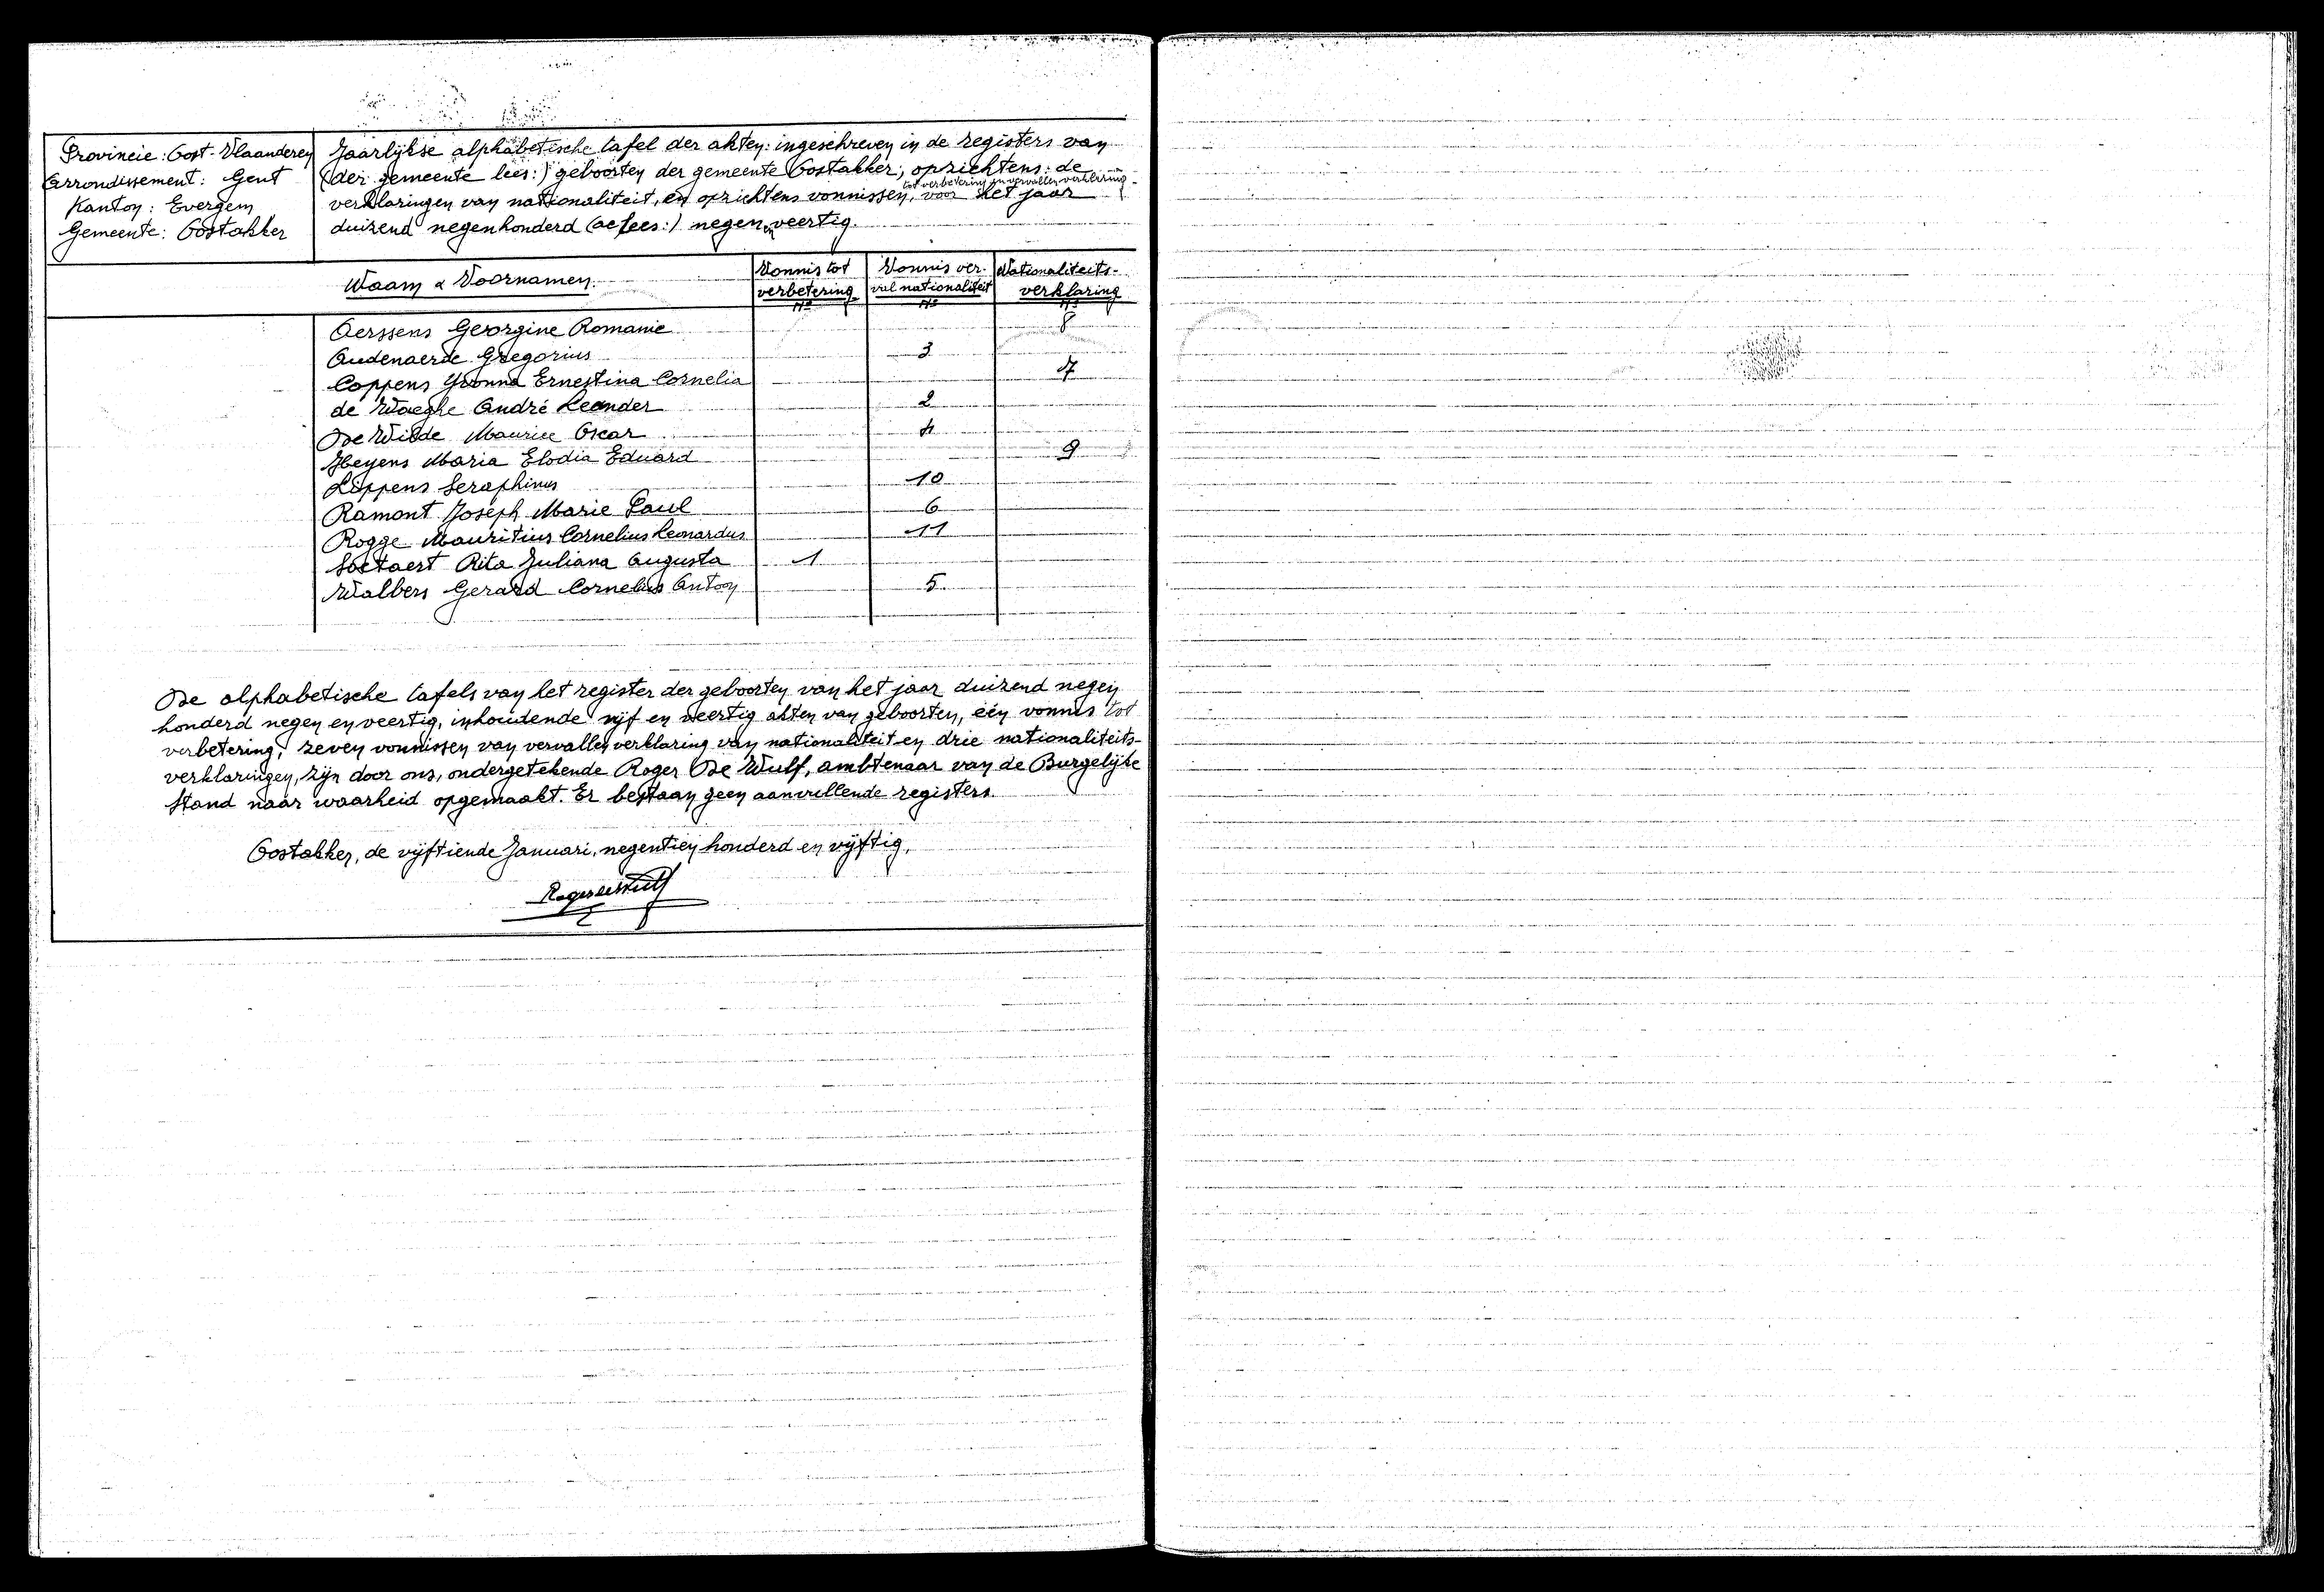 Provincie: Oost-Vlaanderen
Arrondissement: Gent
Kanton: Evergem
Gemeente: Oostakker
Jaarlijkse alphabetische tafel der akten: ingeschreven in de registers van
(der gemeente lees:) geboorten der gemeente Oostakker; opzichtens: de
tot verbetering en vervallen verklaring
verklaringen van nationaliteit, en opzichtens vonnissen, voor het jaar
duizend negenhonderd (ae lees:) negen en veertig.
Naam & Voornamen. Vonnis tot verbetering Vonnis verval nationaliteit Nationaliteits-verklaring
Nº Nº Nº
Aerssens Georgine Romanie 8
Audenaerde Gregorius 3
Coppens Yvonna Ernestina Cornelia 7
de Waeghe André Leander 2
De Wilde Maurice Oscar 4
Heyens Maria Elodia Eduard 9
Lippens Seraphinus 10
Ramont Joseph Marie Paul 6
Rogge Mauritius Cornelius Leonardus 11
Soetaert Rita Juliana Augusta 1
Walbers Gerard Cornelius Anton 5
De alphabetische tafels van het register der geboorten van het jaar duizend negen
honderd negen en veertig, inhoudende vijf en veertig akten van geboorten, één vonnis tot
verbetering, zeven vonnissen van vervallen verklaring van nationaliteit en drie nationaliteits-
verklaringen, zijn door ons, ondergetekende Roger De Wulf, ambtenaar van de Burgelijke
Stand naar waarheid opgemaakt. Er bestaan geen aanvullende registers
Oostakker, de vijftiende Januari, negentien honderd en vijftig,
Roger De Wulf